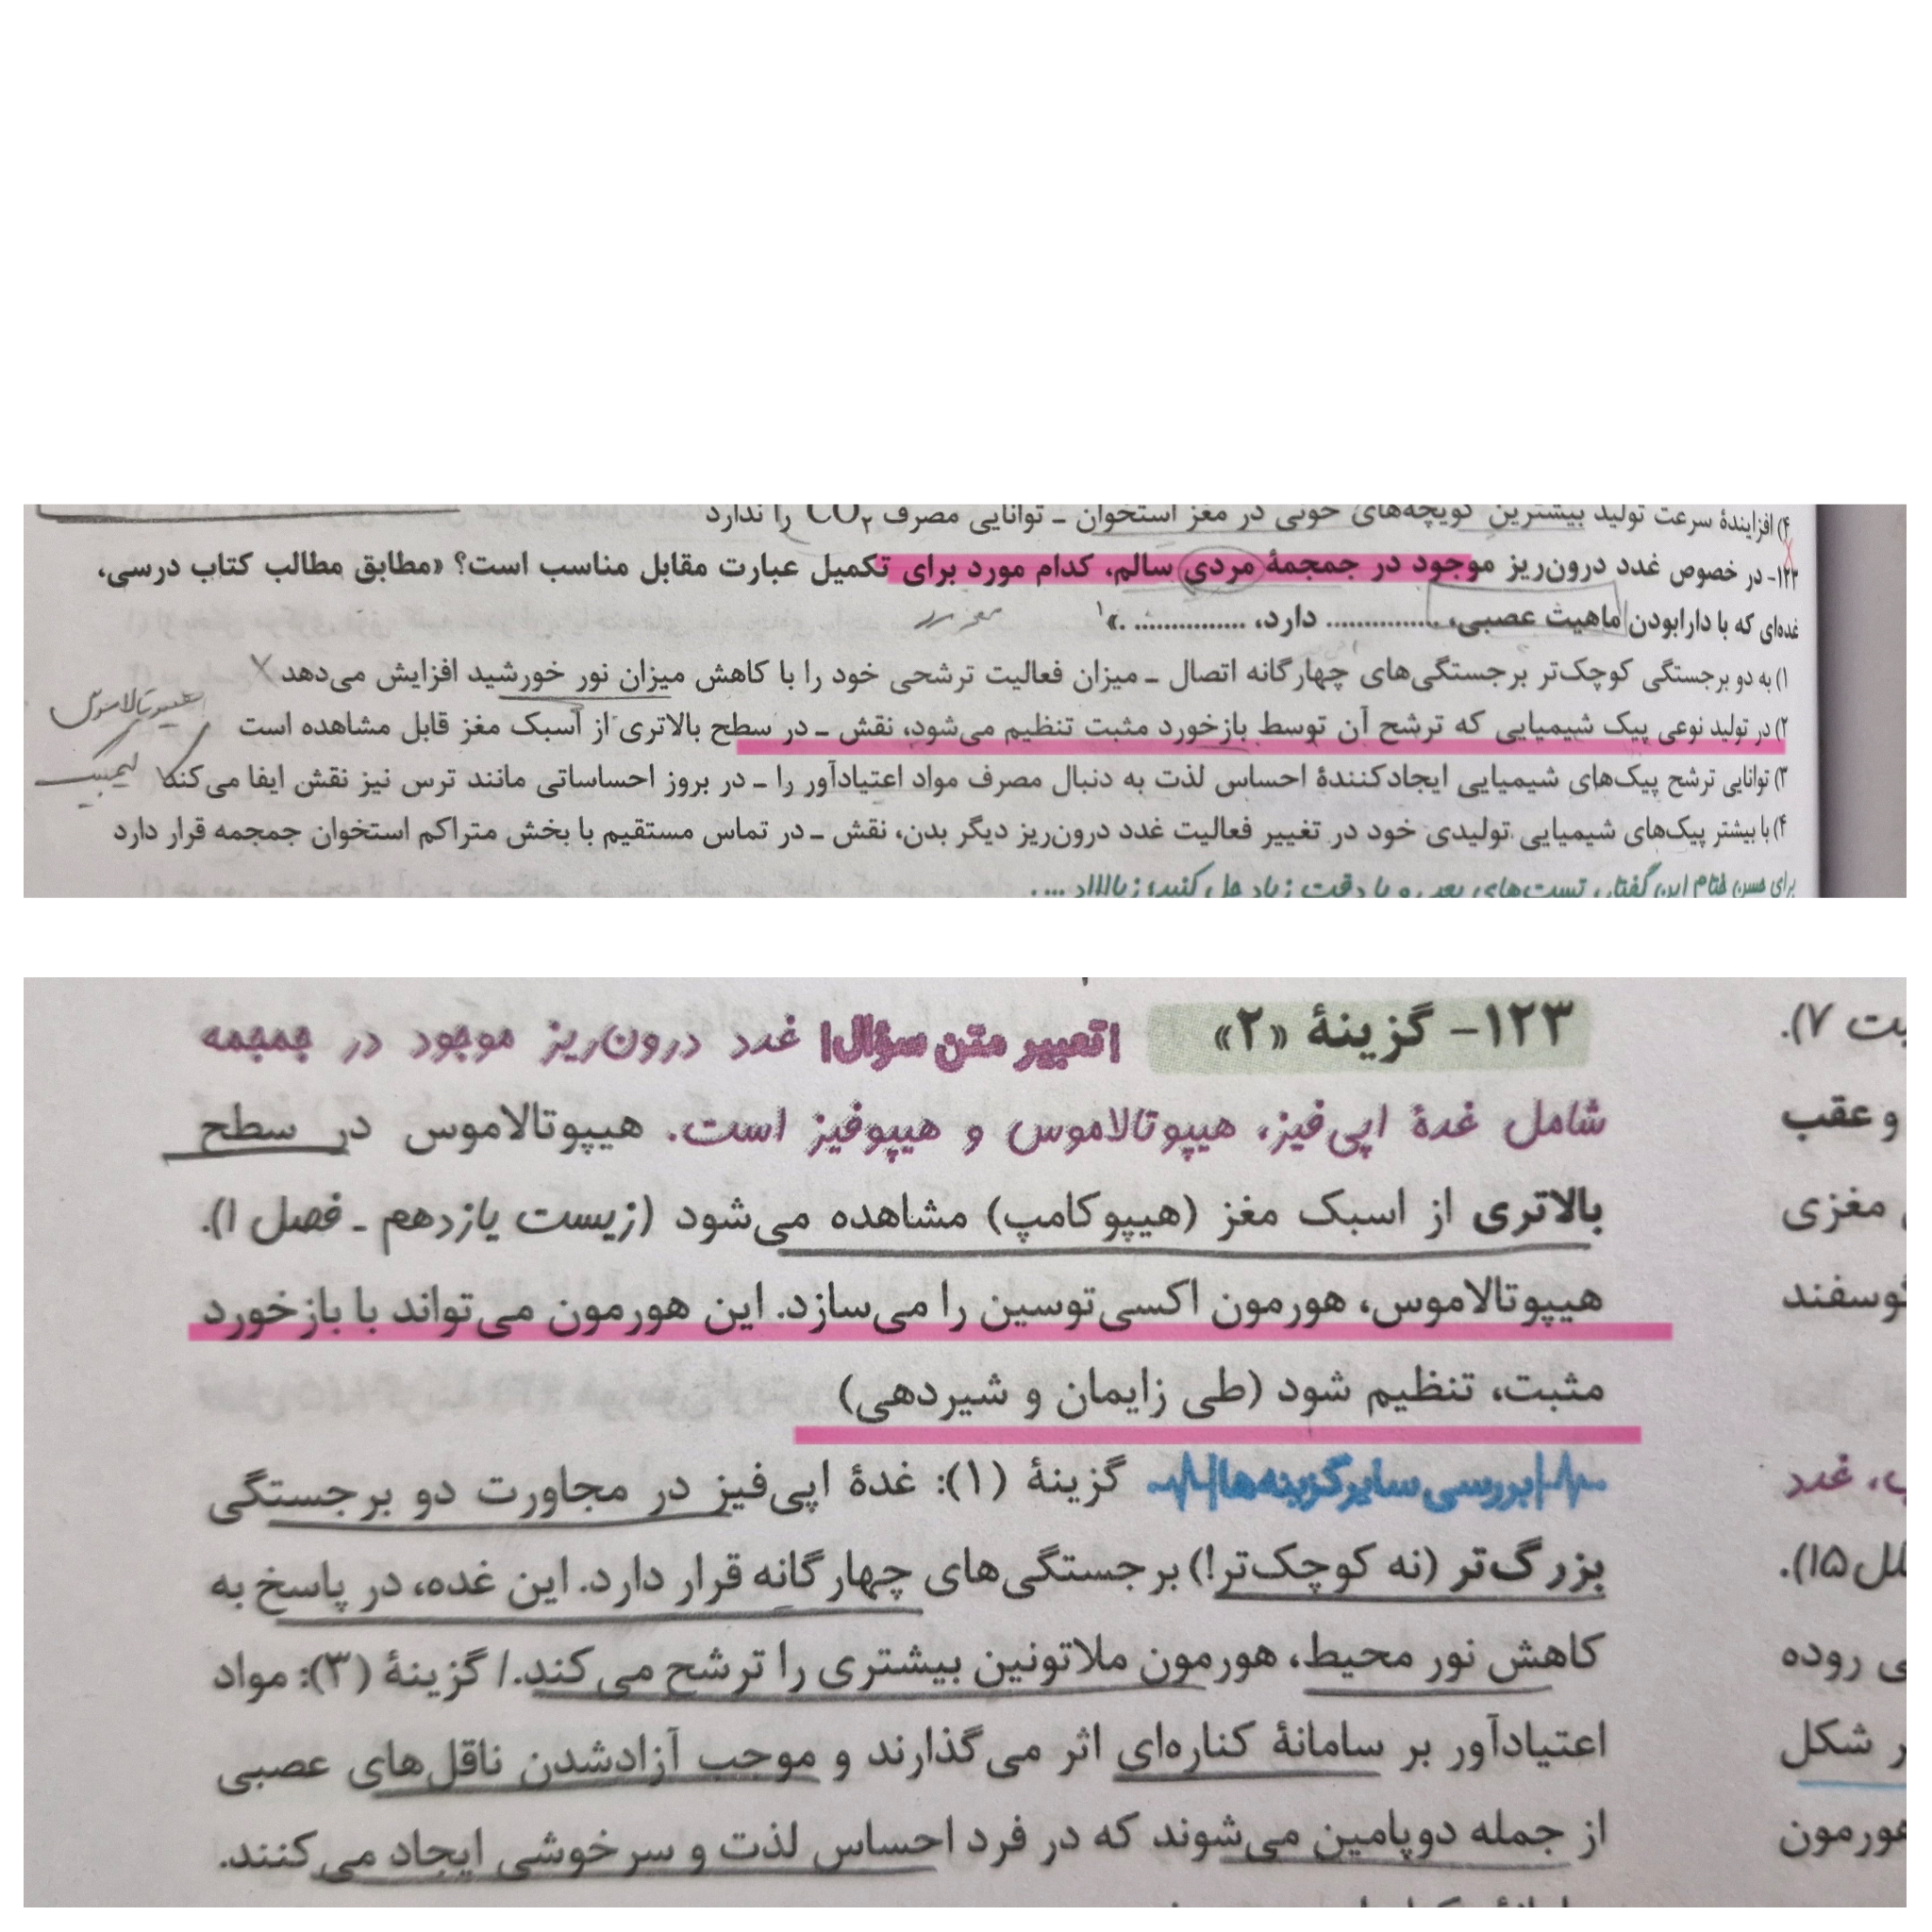 ۴) افزایندهٔ سرعت تولید بیشترین گویچه‌های خونی در مغز استخوان ـ توانایی مصرف CO₂ را ندارد
۱۲۳- در خصوص غدد درون‌ریز موجود در جمجمهٔ مردی سالم، کدام مورد برای تکمیل عبارت مقابل مناسب است؟ «مطابق مطالب کتاب درسی،
غده‌ای که با دارابودن ماهیت عصبی، ............... دارد، ............... .»
۱) به دو برجستگی کوچک‌تر برجستگی‌های چهارگانه اتصال ـ میزان فعالیت ترشحی خود را با کاهش میزان نور خورشید افزایش می‌دهد
هیپوتالاموس
۲) در تولید نوعی پیک شیمیایی که ترشح آن توسط بازخورد مثبت تنظیم می‌شود، نقش ـ در سطح بالاتری از اسبک مغز قابل مشاهده است
لیمبیک
۳) توانایی ترشح پیک‌های شیمیایی ایجادکنندهٔ احساس لذت به دنبال مصرف مواد اعتیادآور را ـ در بروز احساساتی مانند ترس نیز نقش ایفا می‌کند
۴) با بیشتر پیک‌های شیمیایی تولیدی خود در تغییر فعالیت غدد درون‌ریز دیگر بدن، نقش ـ در تماس مستقیم با بخش متراکم استخوان جمجمه قرار دارد
برای حسن ختام این گفتار، تست‌های بعد رو با دقت زیاد حل کنید؛ زیاااااد ....
۱۲۳- گزینهٔ «۲» |تعبیر متن سؤال| غدد درون‌ریز موجود در جمجمه
شامل غدهٔ اپی‌فیز، هیپوتالاموس و هیپوفیز است. هیپوتالاموس در سطح
بالاتری از اسبک مغز (هیپوکامپ) مشاهده می‌شود (زیست یازدهم ـ فصل ۱).
هیپوتالاموس، هورمون اکسی‌توسین را می‌سازد. این هورمون می‌تواند با بازخورد
مثبت، تنظیم شود (طی زایمان و شیردهی)
|بررسی سایر گزینه‌ها| گزینهٔ (۱): غدهٔ اپی‌فیز در مجاورت دو برجستگی
بزرگ‌تر (نه کوچک‌تر!) برجستگی‌های چهارگانه قرار دارد. این غده، در پاسخ به
کاهش نور محیط، هورمون ملاتونین بیشتری را ترشح می‌کند./ گزینهٔ (۳): مواد
اعتیادآور بر سامانهٔ کناره‌ای اثر می‌گذارند و موجب آزادشدن ناقل‌های عصبی
از جمله دوپامین می‌شوند که در فرد احساس لذت و سرخوشی ایجاد می‌کنند.
یت ۷).
و عقب
مغزی
وسفند
ب، غدد
لل ۱۵).
ی روده
ر شکل
هورمون